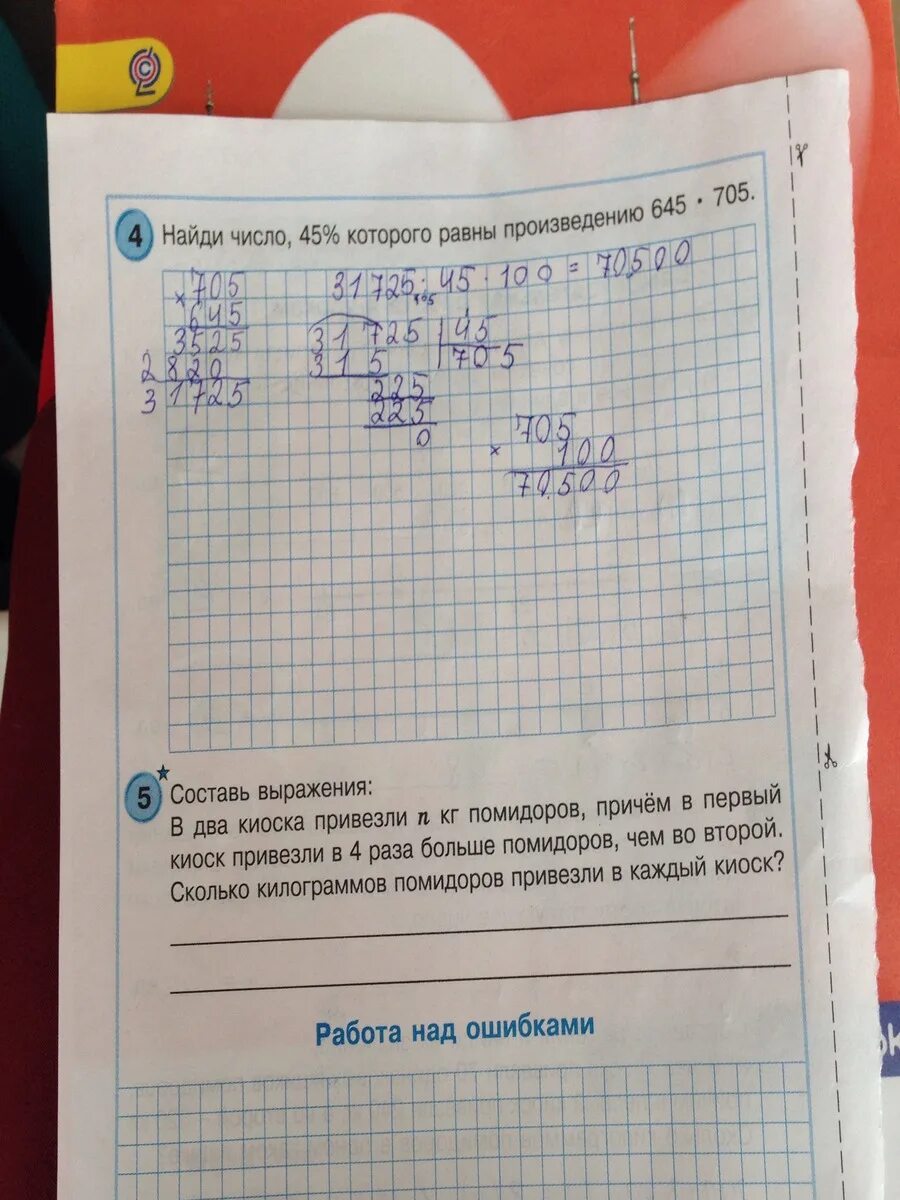 4 Найди число, 45% которого равны произведению 645 · 705.
31725 : 45 · 100 = 70500
705
× 645
3525
2820
31725
31725 | 45
315 | 705
225
225
0
705
× 100
70500
5 Составь выражения:
В два киоска привезли n кг помидоров, причём в первый
киоск привезли в 4 раза больше помидоров, чем во второй.
Сколько килограммов помидоров привезли в каждый киоск?
Работа над ошибками